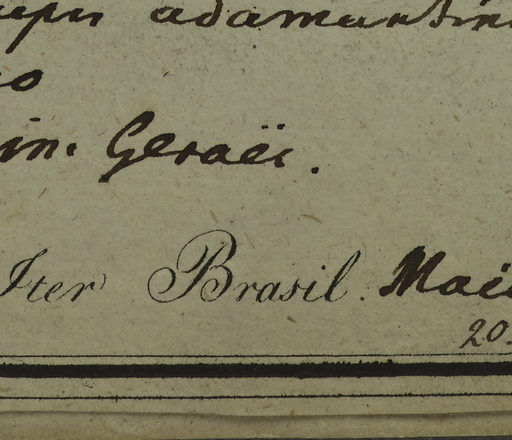 adamantin
in. Geraës.
Iter Brasil. Maio
20.